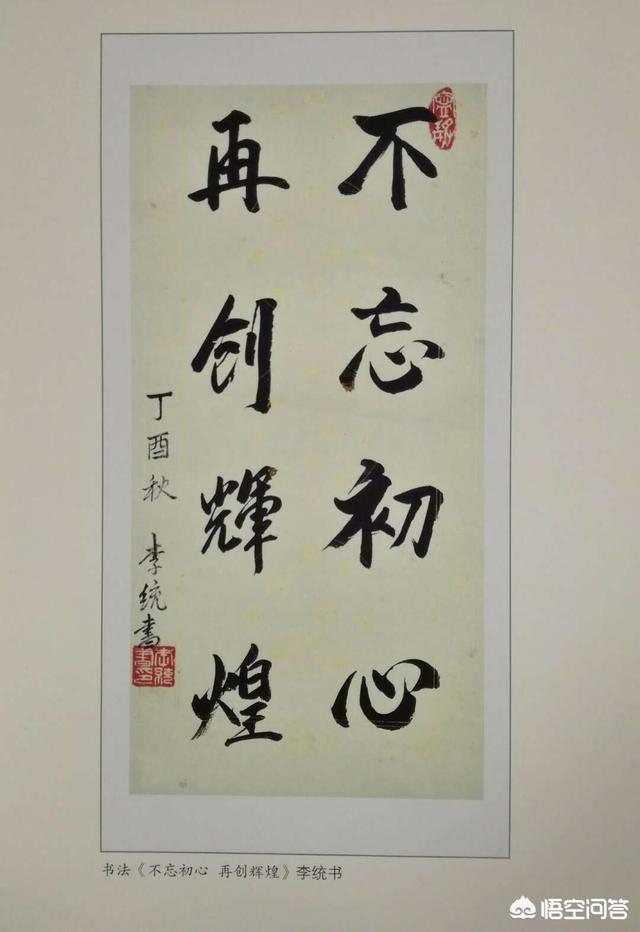 不忘初心
再创輝煌
丁酉秋 李统書
书法《不忘初心 再创辉煌》李统书
悟空问答